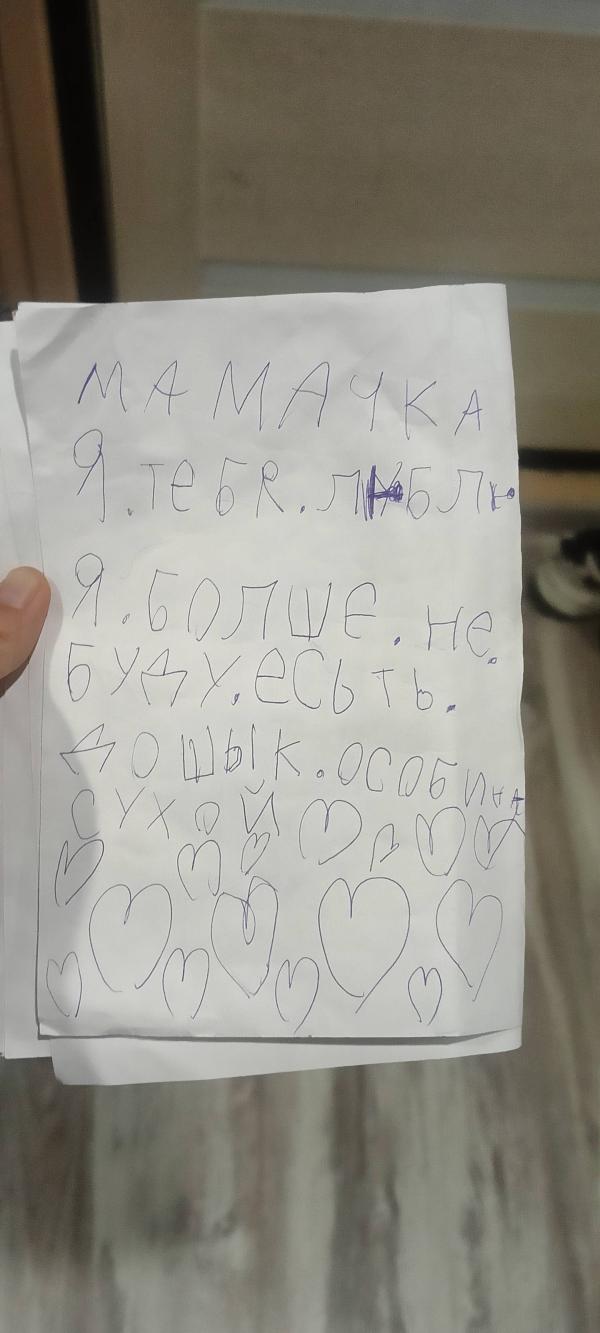 МАМАЧКА
Я.ТЕБЯ.ЛЮБЛЮ
Я.БОЛШЕ.НЕ.
БУДУ.ЕСЬТЬ.
ДОШЫК.ОСОБИНА
СУХОЙ